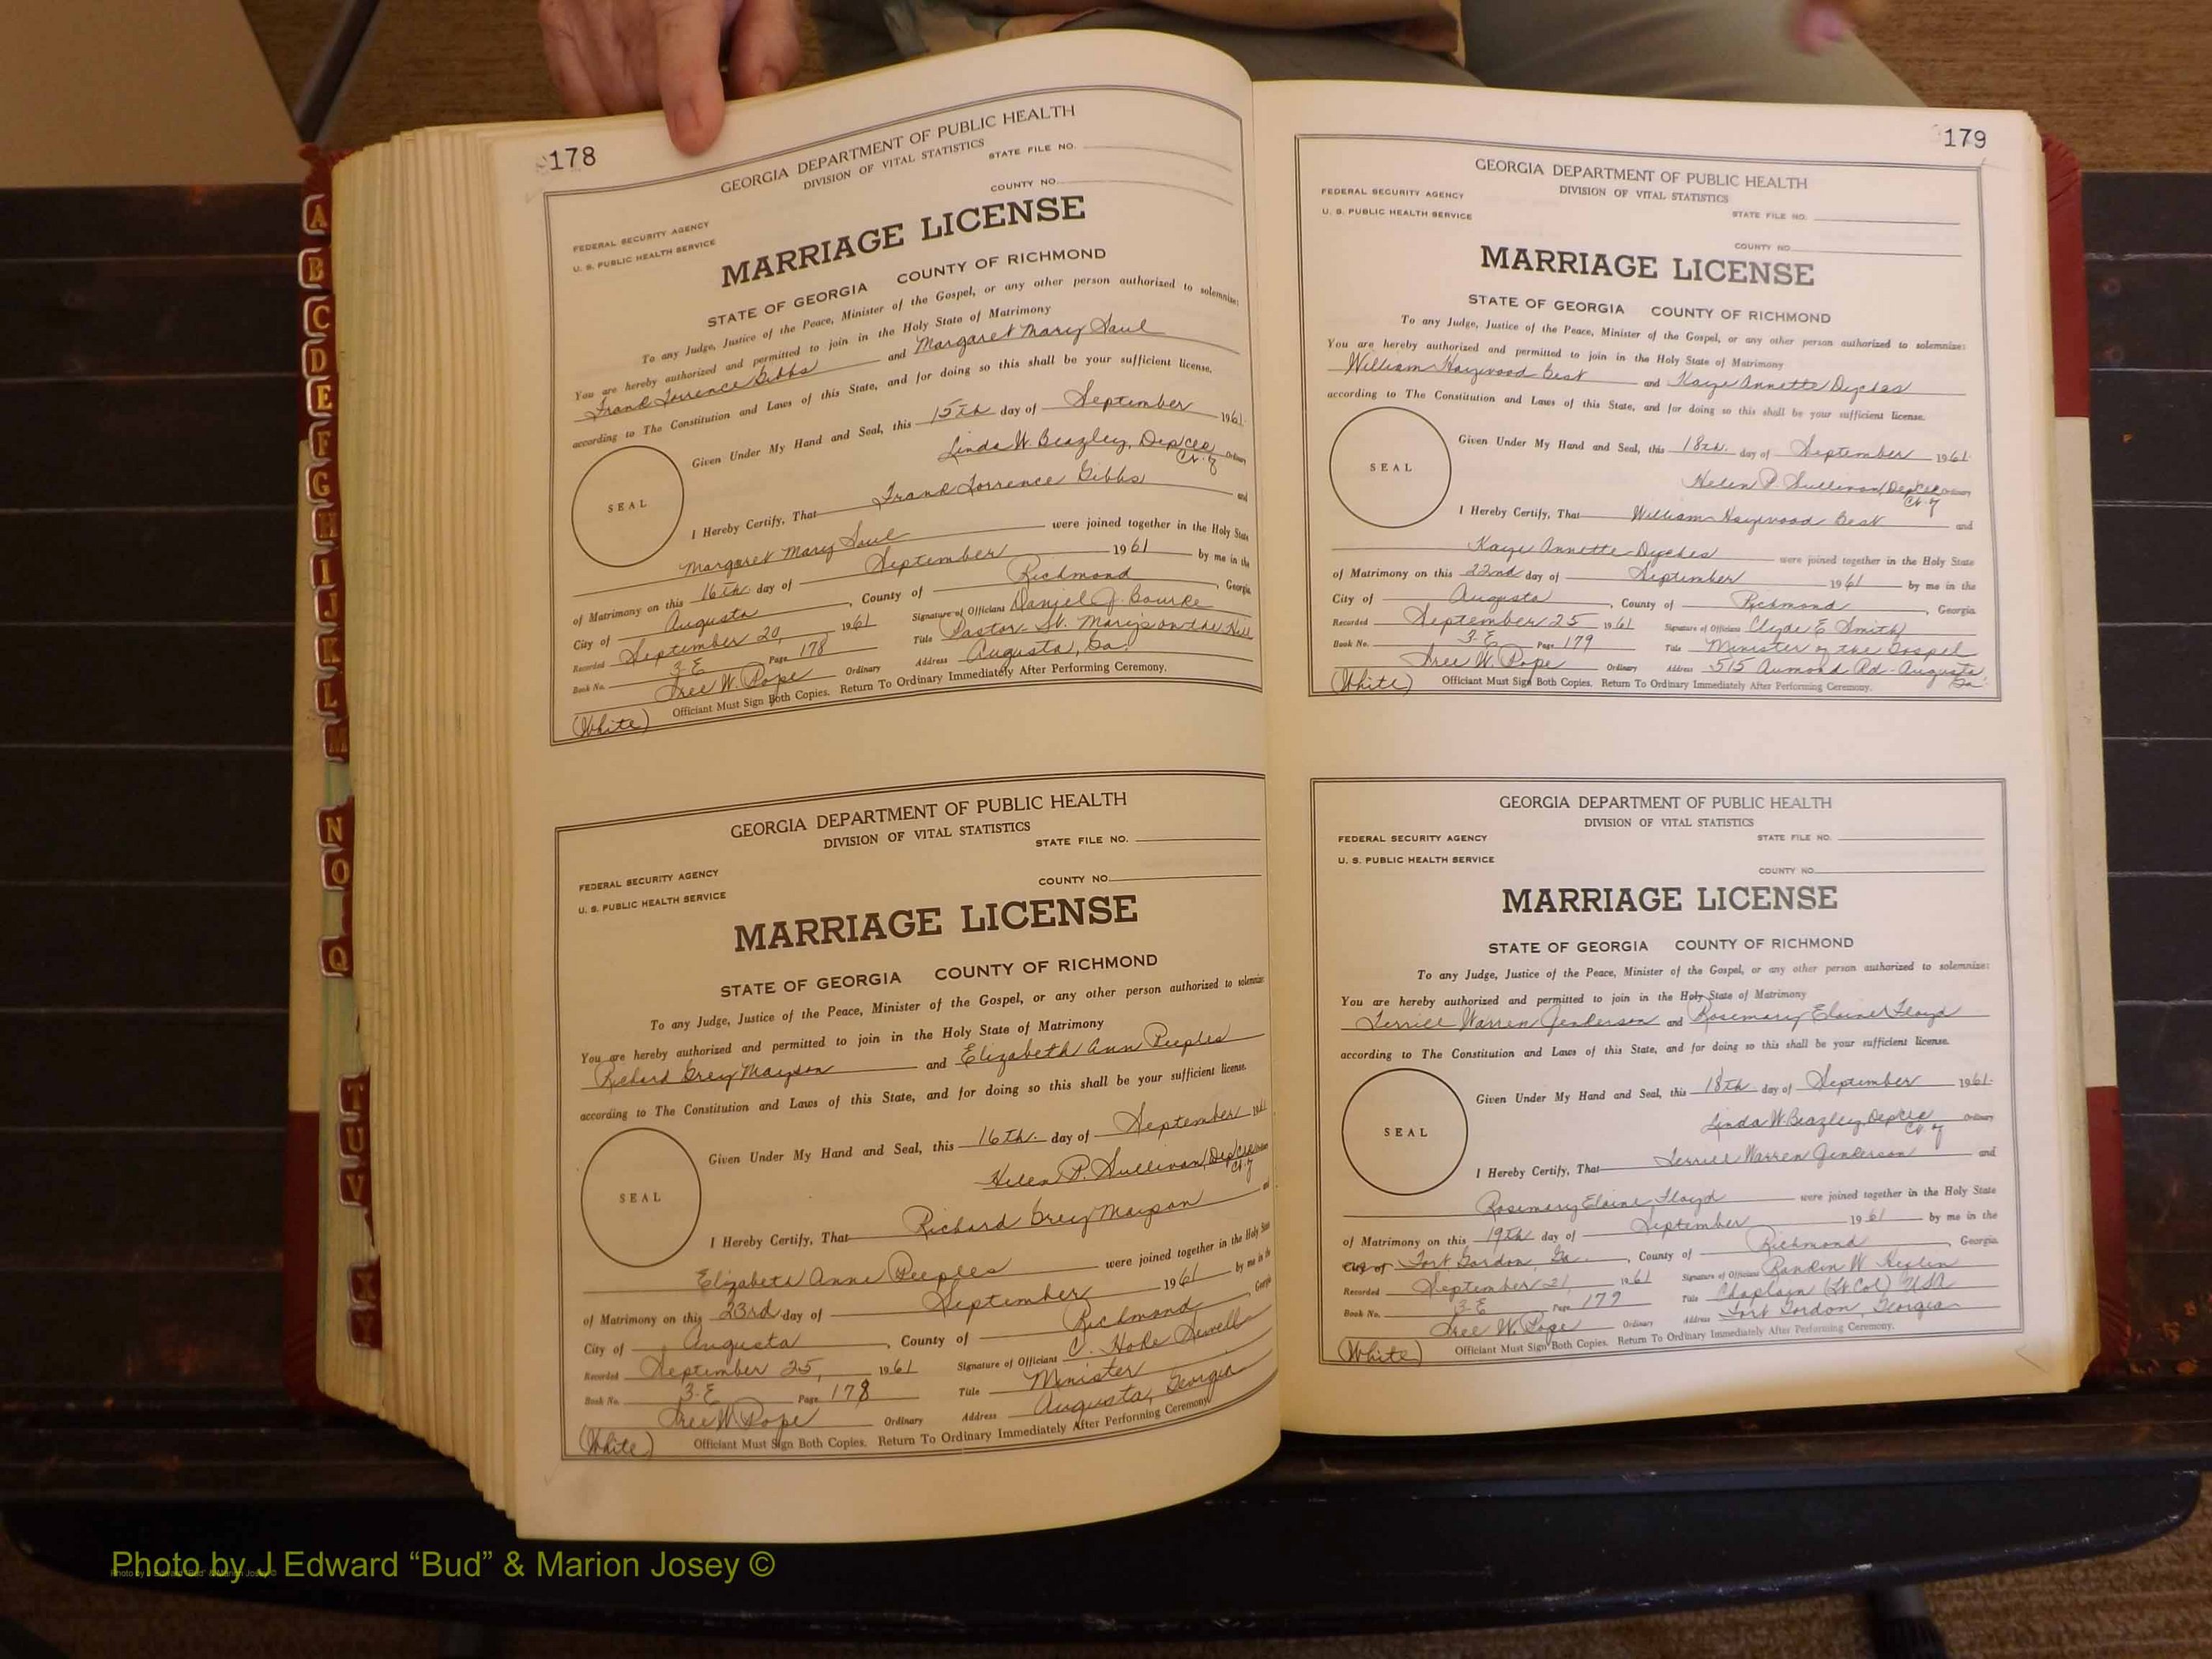 178
GEORGIA DEPARTMENT OF PUBLIC HEALTH
DIVISION OF VITAL STATISTICS
STATE FILE NO.
COUNTY NO.
FEDERAL SECURITY AGENCY
U. S. PUBLIC HEALTH SERVICE
MARRIAGE LICENSE
STATE OF GEORGIA COUNTY OF RICHMOND
To any Judge, Justice of the Peace, Minister of the Gospel, or any other person authorized to solemnize:
You are hereby authorized and permitted to join in the Holy State of Matrimony
Frank Torrence Gibbs and Margaret Mary Saul
according to The Constitution and Laws of this State, and for doing so this shall be your sufficient license.
Given Under My Hand and Seal, this 15th day of September 1961
Linda W. Beazley, Dep Clk Ordinary
SEAL
I Hereby Certify, That Frank Torrence Gibbs and
Margaret Mary Saul were joined together in the Holy State
of Matrimony on this 16th day of September 1961 by me in the
City of Augusta, County of Richmond, Georgia
Recorded September 20, 1961 Signature of Officiant Daniel J. Bourke
Book No. 3-E Page 178 Title Pastor - St. Mary's on the Hill
Tree W. Pope Ordinary Address Augusta, Ga.
(White) Officiant Must Sign Both Copies. Return To Ordinary Immediately After Performing Ceremony.
GEORGIA DEPARTMENT OF PUBLIC HEALTH
DIVISION OF VITAL STATISTICS
STATE FILE NO.
FEDERAL SECURITY AGENCY
COUNTY NO.
U. S. PUBLIC HEALTH SERVICE
MARRIAGE LICENSE
STATE OF GEORGIA COUNTY OF RICHMOND
To any Judge, Justice of the Peace, Minister of the Gospel, or any other person authorized to solemnize:
You are hereby authorized and permitted to join in the Holy State of Matrimony
Richard Grey Mayson and Elizabeth Ann Peeples
according to The Constitution and Laws of this State, and for doing so this shall be your sufficient license.
Given Under My Hand and Seal, this 16th. day of September 1961
Helen P. Sullivan, Dep Clk
SEAL
I Hereby Certify, That Richard Grey Mayson
Elizabeth Anne Peeples were joined together in the Holy State
of Matrimony on this 23rd day of September 1961 by me in the
City of Augusta, County of Richmond Georgia
Recorded September 25, 1961 Signature of Officiant C. Hoke Sewell
Book No. 3-E Page 178 Title Minister
Tree W. Pope Ordinary Address Augusta, Georgia
(White) Officiant Must Sign Both Copies. Return To Ordinary Immediately After Performing Ceremony.
179
GEORGIA DEPARTMENT OF PUBLIC HEALTH
DIVISION OF VITAL STATISTICS
FEDERAL SECURITY AGENCY
U. S. PUBLIC HEALTH SERVICE
STATE FILE NO.
COUNTY NO.
MARRIAGE LICENSE
STATE OF GEORGIA COUNTY OF RICHMOND
To any Judge, Justice of the Peace, Minister of the Gospel, or any other person authorized to solemnize:
You are hereby authorized and permitted to join in the Holy State of Matrimony
William Haywood Best and Kaye Annette Dyches
according to The Constitution and Laws of this State, and for doing so this shall be your sufficient license.
Given Under My Hand and Seal, this 18th. day of September 1961
Helen P. Sullivan, Dep Clk Ordinary
SEAL
I Hereby Certify, That William Haywood Best and
Kaye Annette Dyches were joined together in the Holy State
of Matrimony on this 22nd day of September 1961 by me in the
City of Augusta, County of Richmond, Georgia
Recorded September 25 1961 Signature of Officiant Clyde E Smith
Book No. 3-E Page 179 Title Minister of the Gospel
Tree W. Pope Ordinary Address 515 Aumond Rd - Augusta, Ga.
(White) Officiant Must Sign Both Copies. Return To Ordinary Immediately After Performing Ceremony.
GEORGIA DEPARTMENT OF PUBLIC HEALTH
DIVISION OF VITAL STATISTICS
FEDERAL SECURITY AGENCY STATE FILE NO.
U. S. PUBLIC HEALTH SERVICE
COUNTY NO.
MARRIAGE LICENSE
STATE OF GEORGIA COUNTY OF RICHMOND
To any Judge, Justice of the Peace, Minister of the Gospel, or any other person authorized to solemnize:
You are hereby authorized and permitted to join in the Holy State of Matrimony
Terrill Warren Jenderson and Rosemary Elaine Floyd
according to The Constitution and Laws of this State, and for doing so this shall be your sufficient license.
Given Under My Hand and Seal, this 18th day of September 1961
Linda W. Beazley, Dep Clk Ordinary
SEAL
I Hereby Certify, That Terrill Warren Jenderson and
Rosemary Elaine Floyd were joined together in the Holy State
of Matrimony on this 19th day of September 1961 by me in the
City of Fort Gordon, Ga., County of Richmond, Georgia
Recorded September 21 1961 Signature of Officiant W Heglin
Book No. 3-E Page 179 Title Chaplain (Lt Col) USA
Tree W. Pope Ordinary Address Fort Gordon, Georgia
(White) Officiant Must Sign Both Copies. Return To Ordinary Immediately After Performing Ceremony.
A
B
C
D
E
F
G
H
I
J
K
L
M
N
O
Q
T
U
V
X
Y
Photo by J Edward “Bud” & Marion Josey ©
Photo by J Edward “Bud” & Marion Josey ©